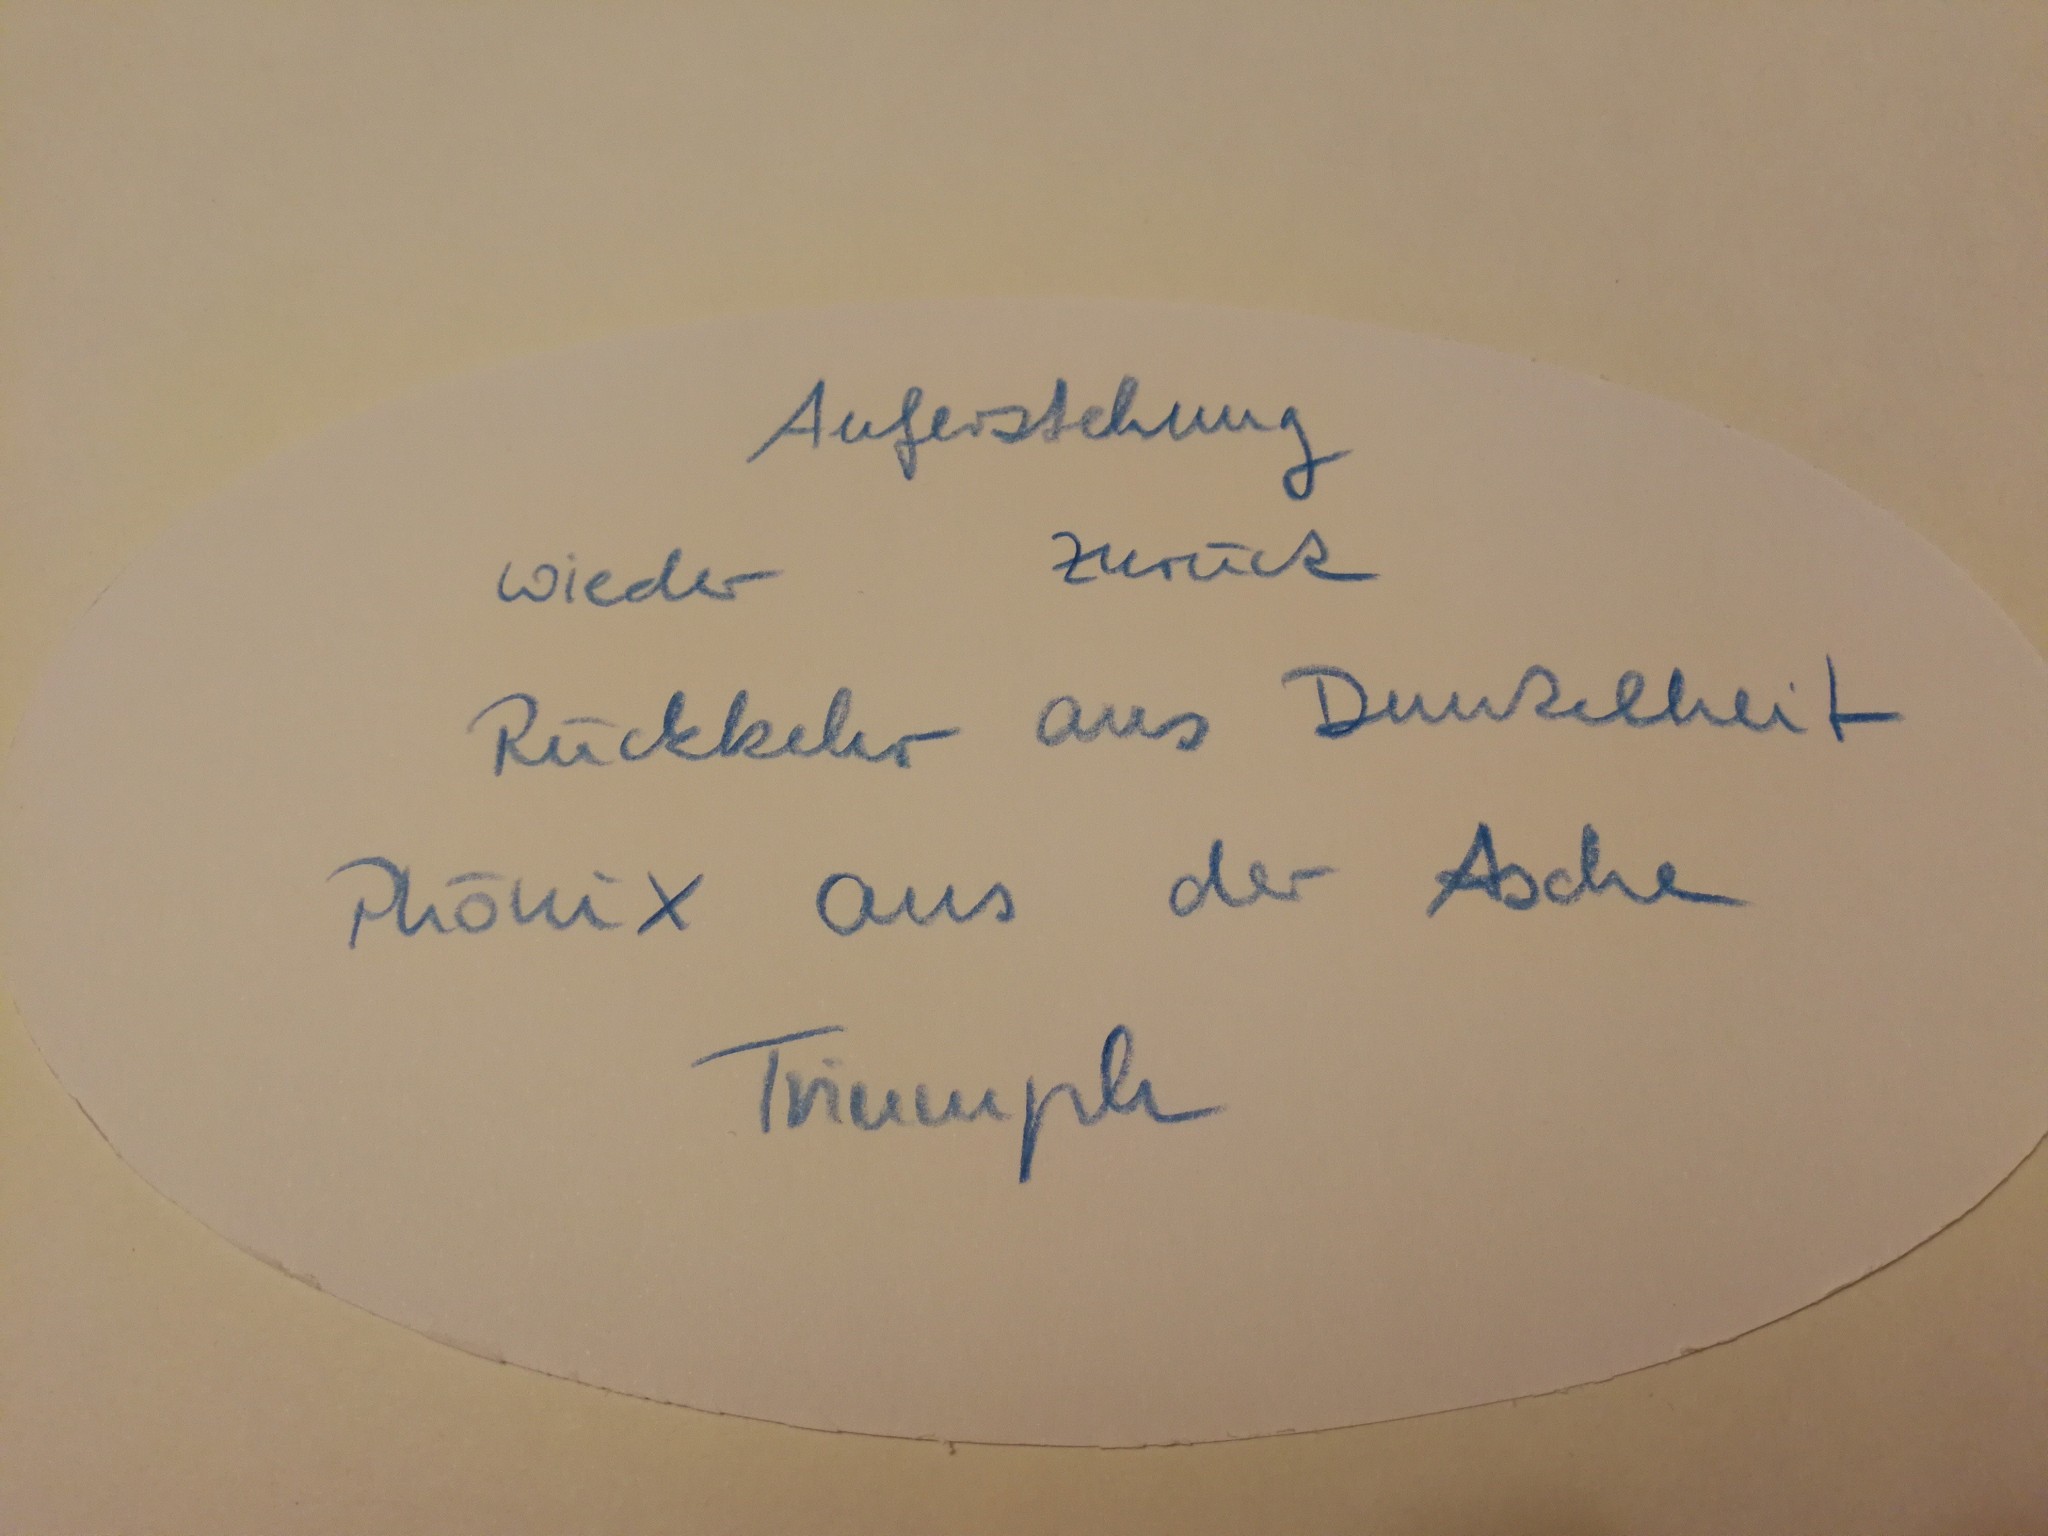 Auferstehung
wieder zurück
Rückkehr aus Dunkelheit
Phönix aus der Asche
Triumph